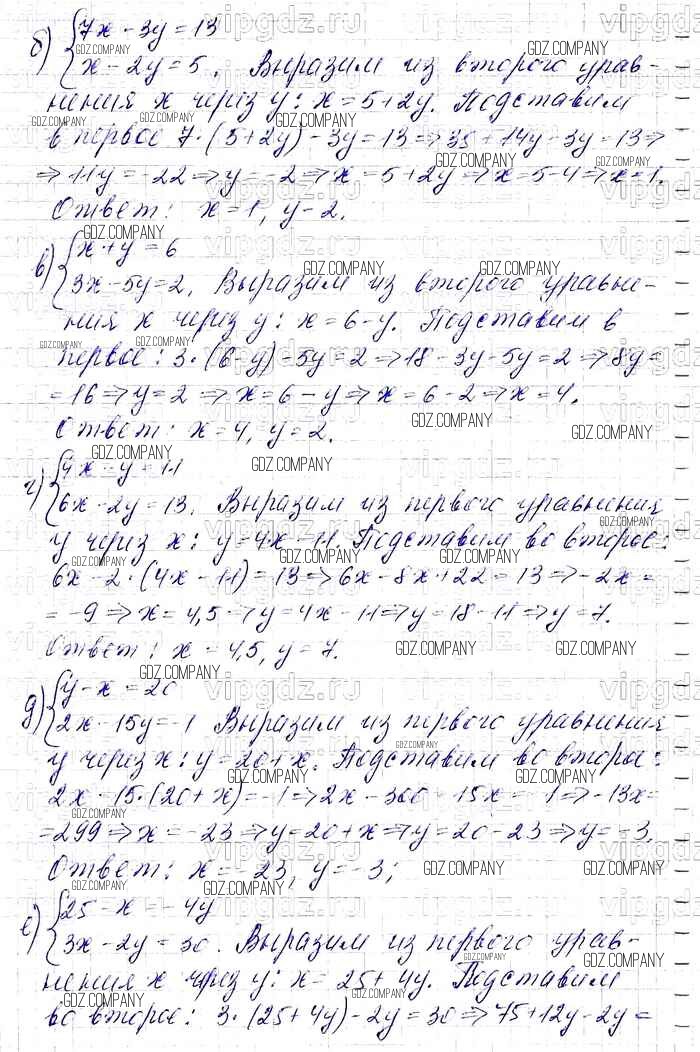 б) {7x - 3y = 13
{x - 2y = 5. Выразим из второго урав-
нения x через y: x = 5 + 2y. Подставим
в первое 7·(5+2y) - 3y = 13 ⇒ 35 + 14y - 3y = 13 ⇒
⇒ 11y = -22 ⇒ y = -2 ⇒ x = 5 + 2y ⇒ x = 5 - 4 ⇒ x = 1.
Ответ: x = 1, y - 2.
в) {x + y = 6
{3x - 5y = 2. Выразим из второго уравне-
ния x через y: x = 6 - y. Подставим в
первое: 3·(6 - y) - 5y = 2 ⇒ 18 - 3y - 5y = 2 ⇒ 8y =
= 16 ⇒ y = 2 ⇒ x = 6 - y ⇒ x = 6 - 2 ⇒ x = 4.
Ответ: x = 4, y = 2.
г) {4x - y = 11
{6x - 2y = 13. Выразим из первого уравнения
y через x: y = 4x - 11. Подставим во второе:
6x - 2·(4x - 11) = 13 ⇒ 6x - 8x + 22 = 13 ⇒ -2x =
= -9 ⇒ x = 4,5 ⇒ y = 4x - 11 ⇒ y = 18 - 11 ⇒ y = 7.
Ответ: x = 4,5, y = 7.
д) {y - x = 20
{2x - 15y = -1 Выразим из первого уравнения
y через x: y = 20 + x. Подставим во второе:
2x - 15·(20 + x) = -1 ⇒ 2x - 300 - 15x = -1 ⇒ -13x =
= 299 ⇒ x = -23 ⇒ y = 20 + x ⇒ y = 20 - 23 ⇒ y = -3.
Ответ: x = -23, y = -3;
е) {25 - x = -4y
{3x - 2y = 30. Выразим из первого урав-
нения x через y: x = 25 + 4y. Подставим
во второе: 3·(25 + 4y) - 2y = 30 ⇒ 75 + 12y - 2y =
GDZ.COMPANY
vipgdz.ru